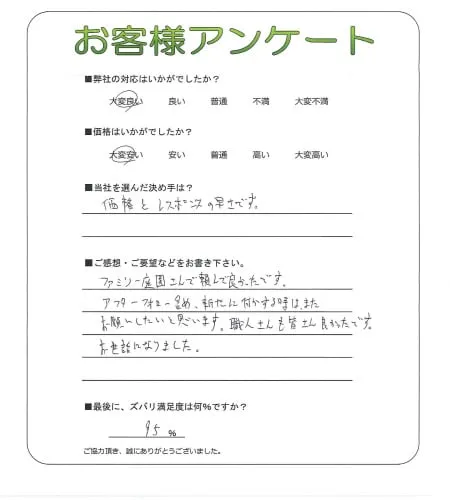 お客様アンケート
■弊社の対応はいかがでしたか?
大変良い 良い 普通 不満 大変不満
■価格はいかがでしたか?
大変安い 安い 普通 高い 大変高い
■当社を選んだ決め手は?
価格とレスポンスの早さです。
■ご感想・ご要望などをお書き下さい。
ファミリー庭園さんで頼んで良かったです。
アフターフォロー含め、新たに何かする時はまた
お願いしたいと思います。職人さんも皆さん良かったです。
お世話になりました。
■最後に、ズバリ満足度は何%ですか?
95 %
ご協力頂き、誠にありがとうございました。